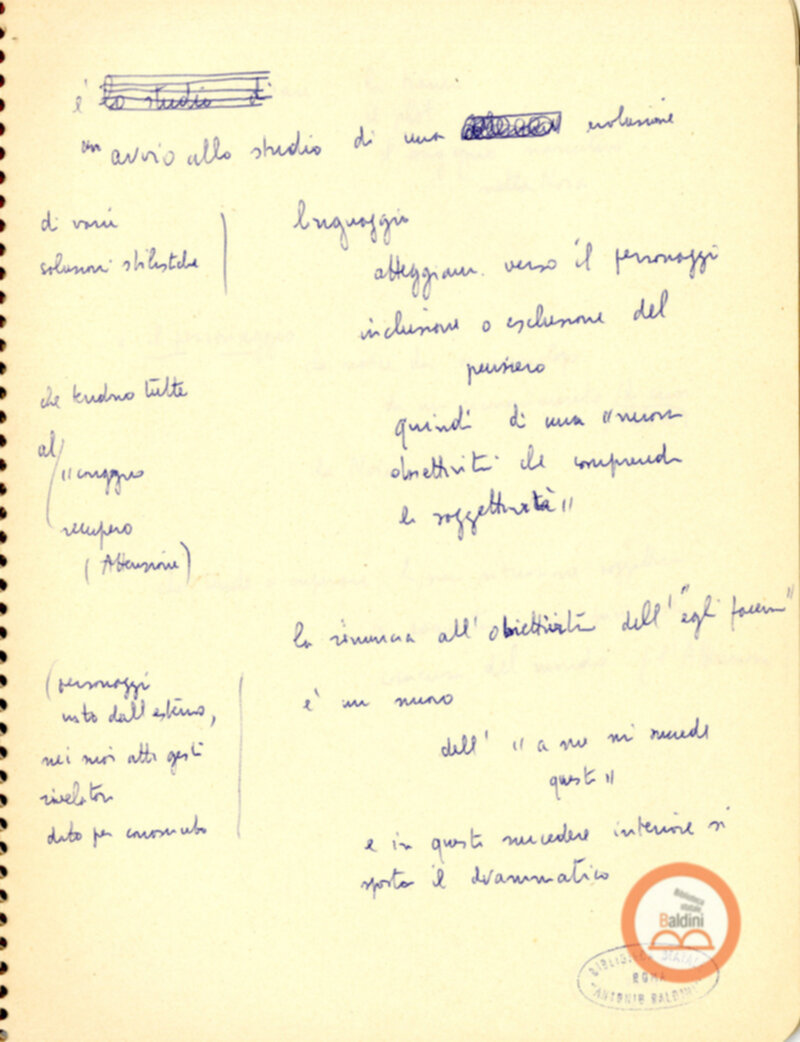 è ~~lo studio di~~
un avvio allo studio di una evoluzione
di varie
soluzioni stilistiche
linguaggio
atteggiam. verso il personaggi
inclusione o esclusione del
pensiero
che tendono tutte
al
recupero
(Attenzione)
quindi di una "nuova
obiettività che comprende
la soggettività"
la rinuncia all'obiettività dell'"egli faceva"
è un nuovo
dell' "a me mi succede
questo"
(personaggi
visto dall'esterno,
nei suoi atti gesti
rivelatori
dato per conosciuto
e in questo succedere interiore si
sposta il drammatico
Biblioteca
statale
Baldini
BIBLIOTECA STATALE
ROMA
"ANTONIO BALDINI"